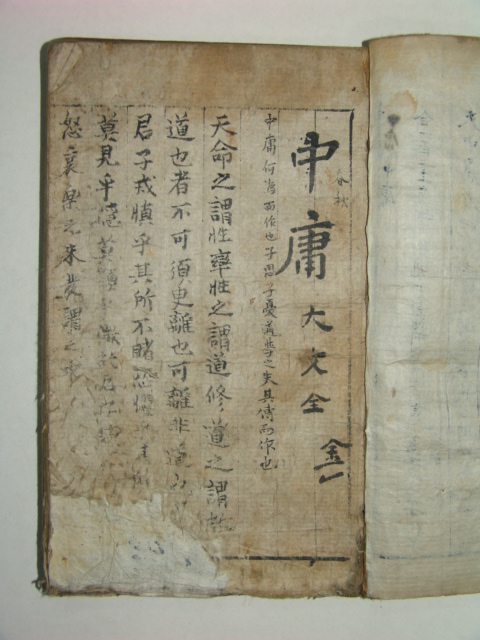 中庸大文全
春秋
中庸何為而作也子思子憂道學之失其傳而作也
天命之謂性率性之謂道修道之謂教
道也者不可須臾離也可離非道也
君子戒慎乎其所不睹恐懼乎其
莫見乎隱莫顯乎微故君子
怒哀樂之未發謂之中